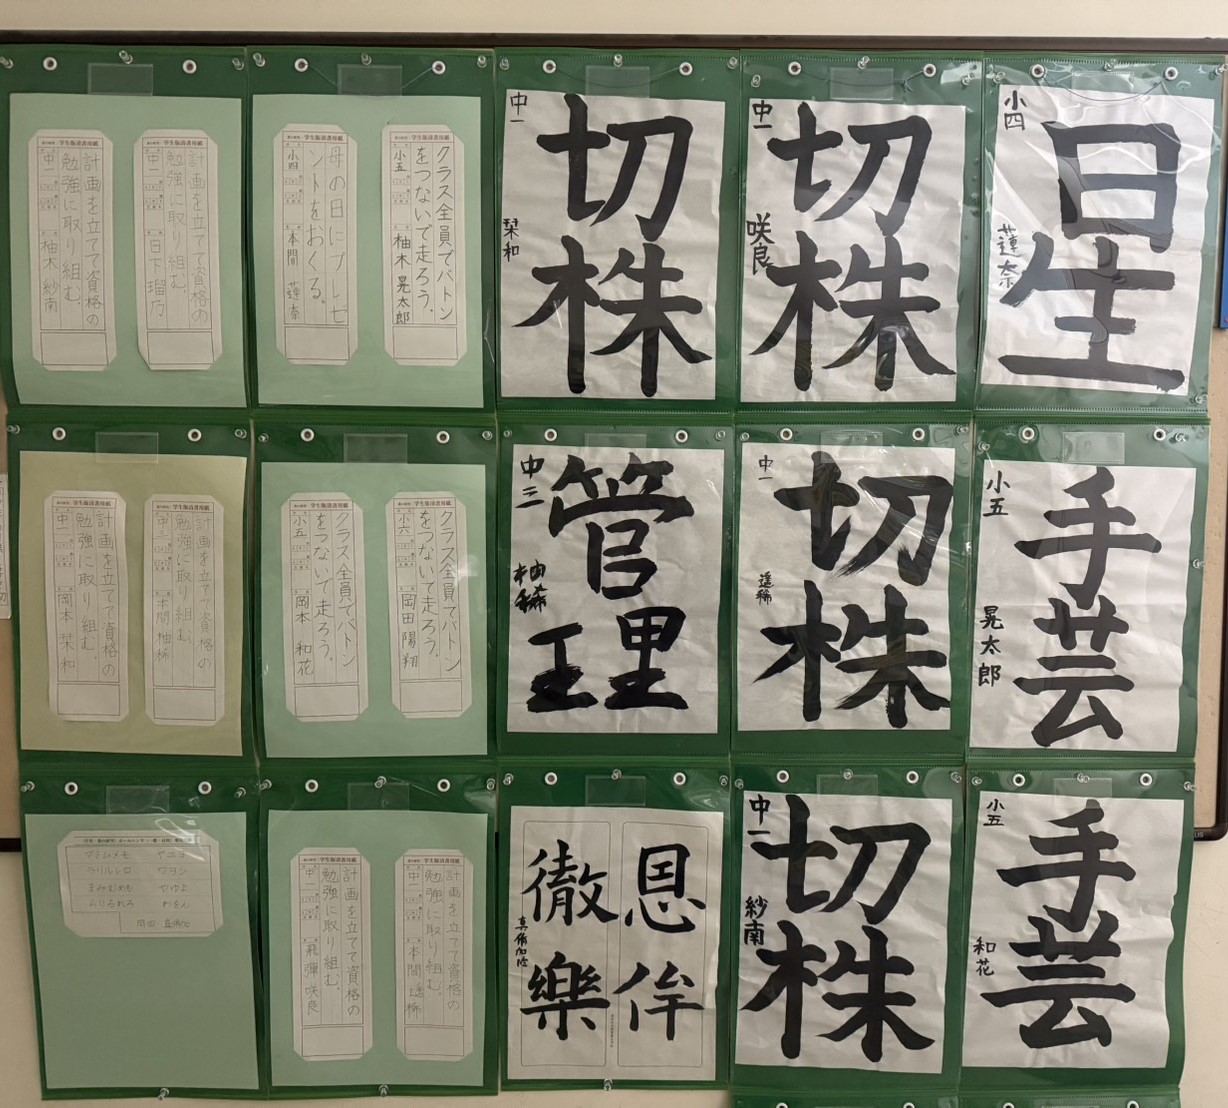 学生版清書用紙
計画を立てて資格の
勉強に取り組む。
中二
日下 瑠乃
学生版清書用紙
計画を立てて資格の
勉強に取り組む。
中一
柚木 紗南
学生版清書用紙
クラス全員でバトン
をつないで走ろう。
小五
柚木 晃太郎
学生版清書用紙
母の日にプレゼ
ントをおくる。
小四
本間 蓮奈
中一
切株
栞和
中一
切株
咲良
小四
日生
蓮奈
学生版清書用紙
計画を立てて資格の
勉強に取り組む。
中三
本間 柚稀
学生版清書用紙
計画を立てて資格の
勉強に取り組む。
中一
岡本 栞和
学生版清書用紙
クラス全員でバトン
をつないで走ろう。
小六
岡田 陽翔
学生版清書用紙
クラス全員でバトン
をつないで走ろう。
小五
岡本 和花
中三
管理
柚稀
中一
切株
遥稀
小五
手芸
晃太郎
マミムメモ
ヤユヨ
ラリルレロ
ワヨン
まみむめも
やゆよ
らりるれろ
わをん
学生版清書用紙
計画を立てて資格の
勉強に取り組む。
中一
本間 遥稀
学生版清書用紙
計画を立てて資格の
勉強に取り組む。
中一
飛弾 咲良
恩侔
徹樂
中一
切株
紗南
小五
手芸
和花